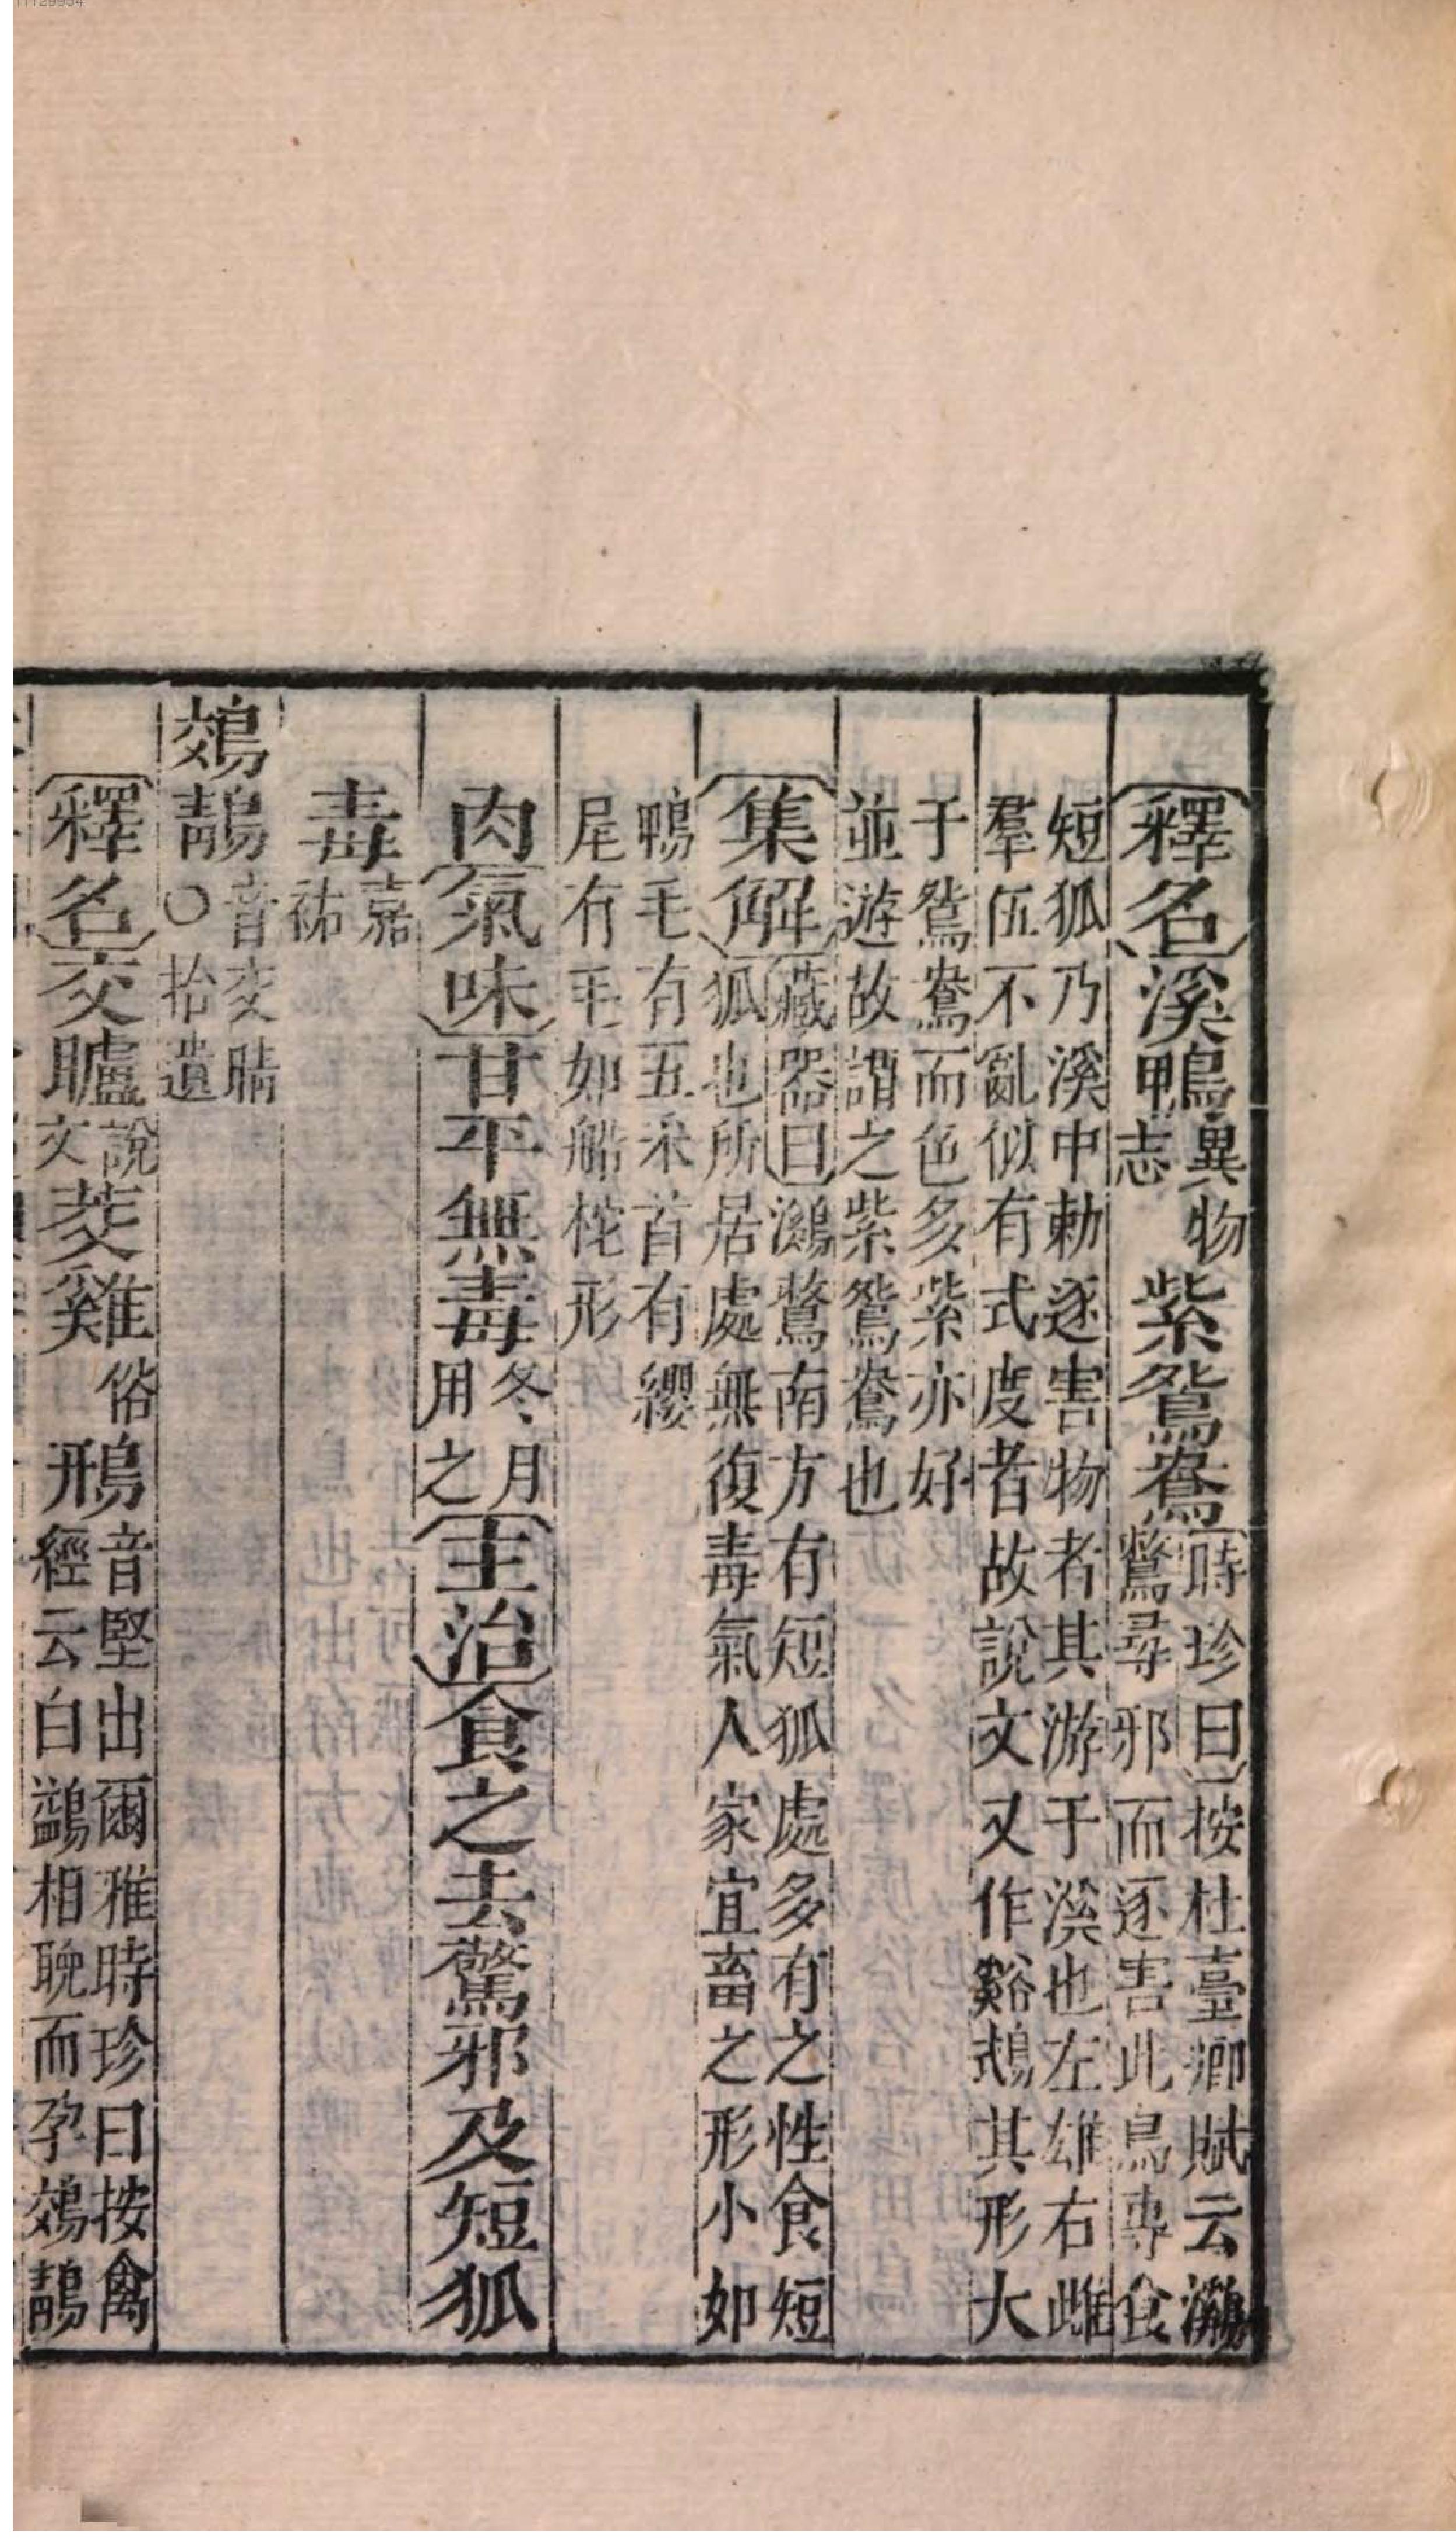 〔釋名〕溪鴨異物志紫鴛鴦〔時珍曰〕按杜臺卿賦云鸂鷘尋邪而逐害此鳥專食
短狐乃溪中勅逐害物者其游于溪也左雄右雌
羣伍不亂似有式度者故說文又作谿鵡其形大
于鴛鴦而色多紫亦好
並遊故謂之紫鴛鴦也
〔集解〕〔藏器曰〕鸂鷘南方有短狐處多有之性食短狐也所居處無復毒氣人家宜畜之形小如
鴨毛有五采首有纓
尾有毛如船柁形
肉〔氣味〕甘平無毒冬月用之〔主治〕食之去驚邪及短狐
毒嘉祐
鵁鶄音交睛〇拾遺
〔釋名〕交矑說文茭雞俗鳽音堅出爾雅時珍曰按禽經云白鷁相睨而孕鵁鶄